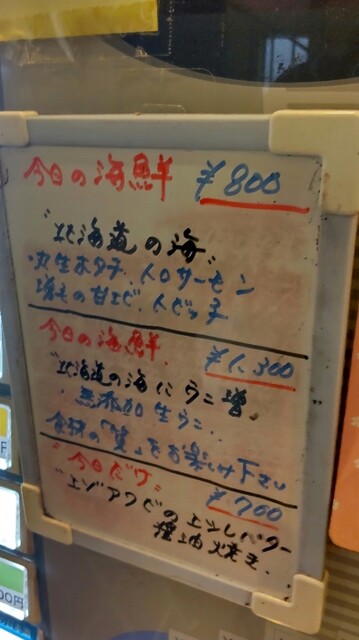 今日の海鮮 ¥800
"北海道の海"
・丸生ホタテ、トロサーモン
増毛の甘エビ、トビッ子
今日の海鮮、 ¥1,300
"北海道の海にうに増。
・無添加生うに、
食材の「質」をお楽しみ下さい
"今日だけ" ¥700
"エゾアワビのエシレバター
醤油焼き、
F
00円